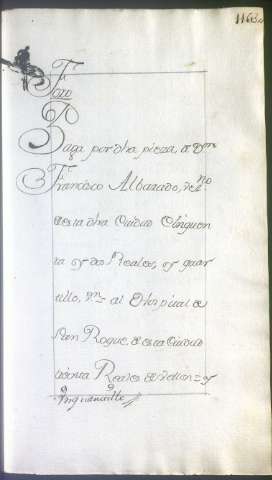 1168
Paga por dha pieza, a Dn
Francisco Albarado, vezno
de esta dha Ciudad Cinquen
ta y dos Reales, y quar
tillo, Yns al Hospital de
San Roque, de esta Ciudad
treinta Reales de vellon = y